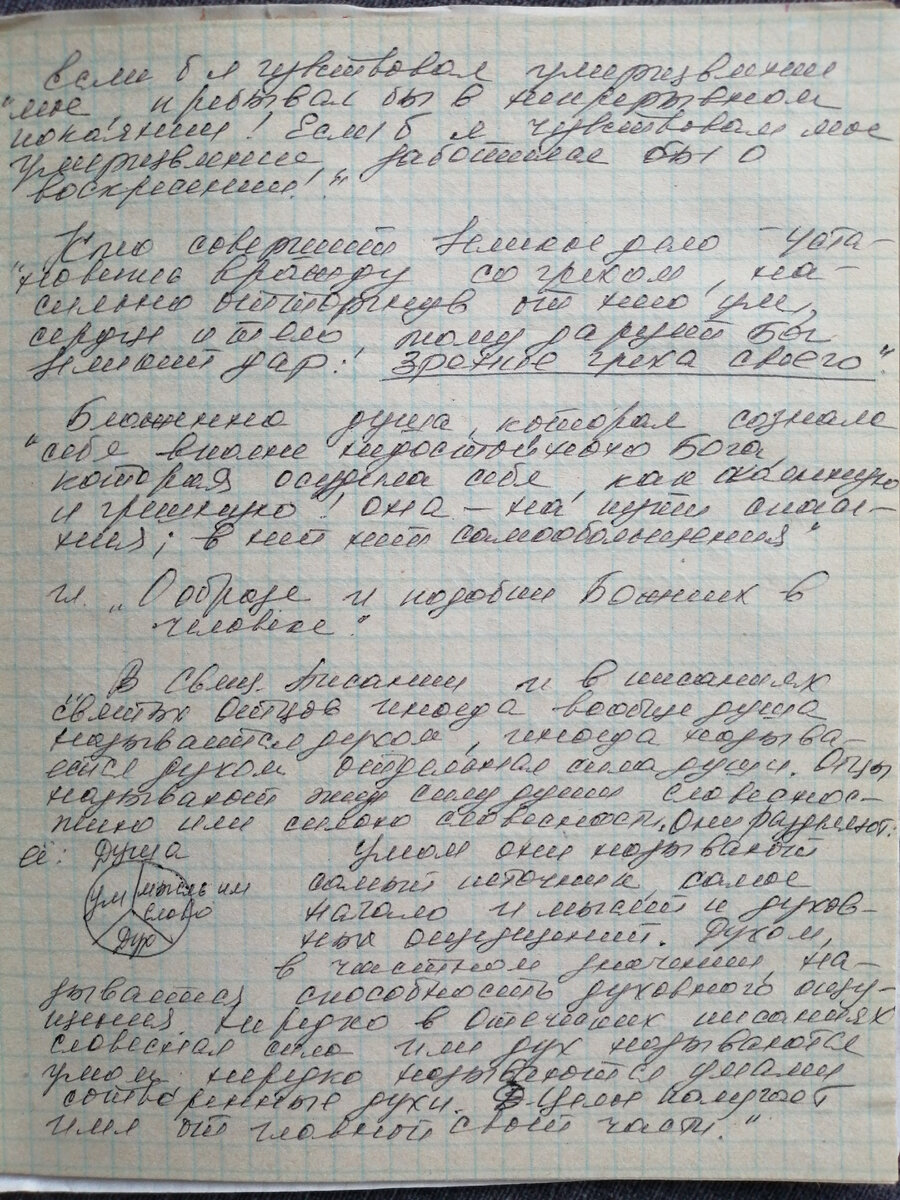 Если б я чувствовал умерщвление
"мое, пребывал бы в непрерывном
покаянии! Если б я чувствовал мое
умерщвление, заботился бы о
воскресении!"
Кто совершит великое дело - уста-
"новление вражду со грехом, на-
сильно отторгнув от него ум,
сердце и тело, тому дарует Бог
великий дар: зрение греха своего".
Блаженна душа, которая сознала
"себя вполне недостойною Бога,
которая осудила себя, как окаянную
и грешную! она - на пути спасе-
ния; в ней нет самообольщения"
гл. "О образе и подобии Божиих в
человеке".
В Свящ. Писании и в писаниях
"святых Отцов иногда вообще душа
называется духом, иногда называ-
ется духом отдельная сила души. Отцы
называют эту силу души словеснос-
тию или силою словесности. Они разделяют
её: Душа Умом они называют
ум мысль или слово Дух
самый источник, самое
начало и мыслей и духов-
ных ощущений. Духом,
в частном значении, на-
зывается способность духовного ощу-
щения. Нередко в Отеческих писаниях
словесная сила или дух называются
умом, нередко называются умами
сотворенные духи. Целое получает
имя от главной своей части."